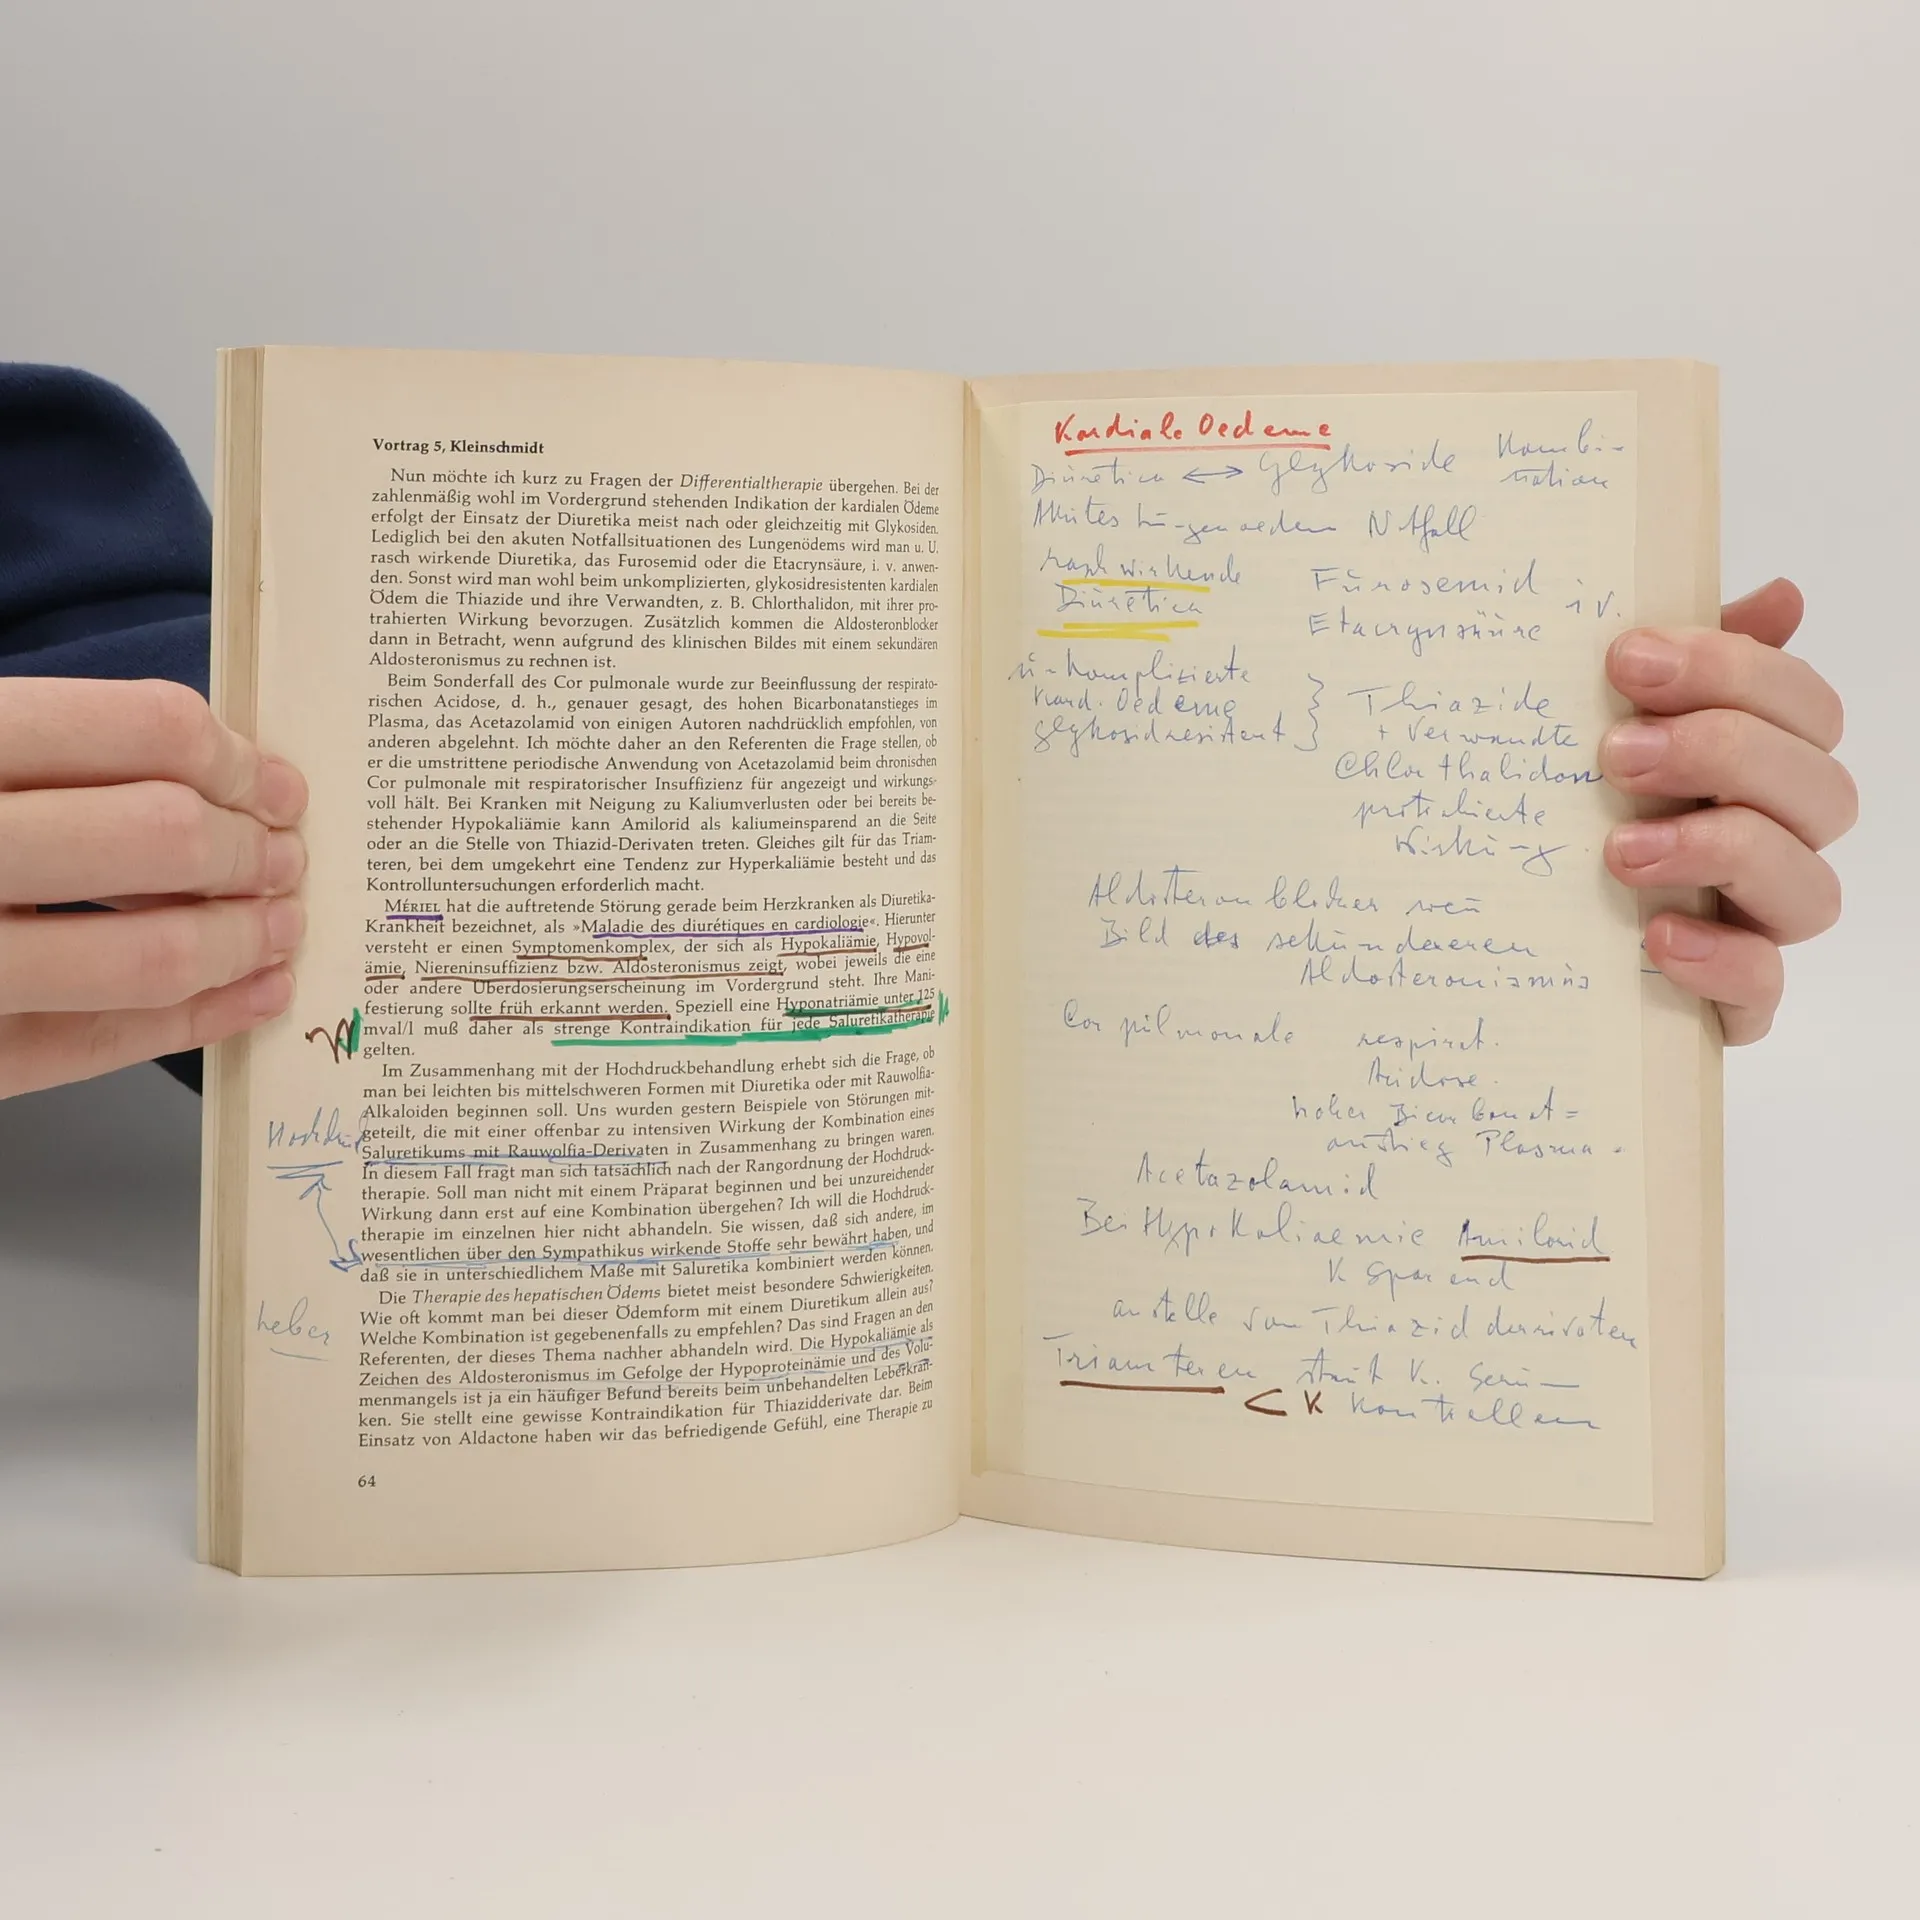 Vortrag 5, Kleinschmidt
Nun möchte ich kurz zu Fragen der Differentialtherapie übergehen. Bei der
zahlenmäßig wohl im Vordergrund stehenden Indikation der kardialen Ödeme
erfolgt der Einsatz der Diuretika meist nach oder gleichzeitig mit Glykosiden.
Lediglich bei den akuten Notfallsituationen des Lungenödems wird man u. U.
rasch wirkende Diuretika, das Furosemid oder die Etacrynsäure, i. v. anwen-
den. Sonst wird man wohl beim unkomplizierten, glykosidresistenten kardialen
Ödem die Thiazide und ihre Verwandten, z. B. Chlorthalidon, mit ihrer pro-
trahierten Wirkung bevorzugen. Zusätzlich kommen die Aldosteronblocker
dann in Betracht, wenn aufgrund des klinischen Bildes mit einem sekundären
Aldosteronismus zu rechnen ist.
Beim Sonderfall des Cor pulmonale wurde zur Beeinflussung der respirato-
rischen Acidose, d. h., genauer gesagt, des hohen Bicarbonatanstieges im
Plasma, das Acetazolamid von einigen Autoren nachdrücklich empfohlen, von
anderen abgelehnt. Ich möchte daher an den Referenten die Frage stellen, ob
er die umstrittene periodische Anwendung von Acetazolamid beim chronischen
Cor pulmonale mit respiratorischer Insuffizienz für angezeigt und wirkungs-
voll hält. Bei Kranken mit Neigung zu Kaliumverlusten oder bei bereits be-
stehender Hypokaliämie kann Amilorid als kaliumeinsparend an die Seite
oder an die Stelle von Thiazid-Derivaten treten. Gleiches gilt für das Triam-
teren, bei dem umgekehrt eine Tendenz zur Hyperkaliämie besteht und das
Kontrolluntersuchungen erforderlich macht.
MÉRIEL hat die auftretende Störung gerade beim Herzkranken als Diuretika-
Krankheit bezeichnet, als »Maladie des diurétiques en cardiologie«. Hierunter
versteht er einen Symptomenkomplex, der sich als Hypokaliämie, Hypovol-
ämie, Niereninsuffizienz bzw. Aldosteronismus zeigt, wobei jeweils die eine
oder andere Überdosierungserscheinung im Vordergrund steht. Ihre Mani-
festierung sollte früh erkannt werden. Speziell eine Hyponatriämie unter 125
mval/l muß daher als strenge Kontraindikation für jede Saluretikatherapie
gelten.
Im Zusammenhang mit der Hochdruckbehandlung erhebt sich die Frage, ob
man bei leichten bis mittelschweren Formen mit Diuretika oder mit Rauwolfia-
Alkaloiden beginnen soll. Uns wurden gestern Beispiele von Störungen mit-
geteilt, die mit einer offenbar zu intensiven Wirkung der Kombination eines
Saluretikums mit Rauwolfia-Derivaten in Zusammenhang zu bringen waren.
In diesem Fall fragt man sich tatsächlich nach der Rangordnung der Hochdruck-
therapie. Soll man nicht mit einem Präparat beginnen und bei unzureichender
Wirkung dann erst auf eine Kombination übergehen? Ich will die Hochdruck-
therapie im einzelnen hier nicht abhandeln. Sie wissen, daß sich andere, im
wesentlichen über den Sympathikus wirkende Stoffe sehr bewährt haben, und
daß sie in unterschiedlichem Maße mit Saluretika kombiniert werden können.
Die Therapie des hepatischen Ödems bietet meist besondere Schwierigkeiten.
Wie oft kommt man bei dieser Ödemform mit einem Diuretikum allein aus?
Welche Kombination ist gegebenenfalls zu empfehlen? Das sind Fragen an den
Referenten, der dieses Thema nachher abhandeln wird. Die Hypokaliämie als
Zeichen des Aldosteronismus im Gefolge der Hypoproteinämie und des Volu-
menmangels ist ja ein häufiger Befund bereits beim unbehandelten Leberkran-
ken. Sie stellt eine gewisse Kontraindikation für Thiazidderivate dar. Beim
Einsatz von Aldactone haben wir das befriedigende Gefühl, eine Therapie zu
64
Hochdruck
Leber
Kardiale Oedeme
Diuretica ↔ Glykoside Kombi-
nation
Akutes Lungenoedem Notfall
rasch wirkende
Diuretica
Furosemid
Etacrynsäure i V.
unkomplizierte
Kard. Oedeme
glykosidresistent
} Thiazide
+ Verwandte
Chlorthalidon
protrahierte
Wirkung.
Aldosteronblocker wenn
Bild des sekunderen
Aldosteronismus
Cor pulmonale respirat.
Acidose.
hoher Bicarbonat=
anstieg Plasma.
Acetazolamid
Bei Hypokaliaemie Amilorid
K Sparend
anstelle von Thiazid derivaten
Triamteren K. Serum
< K Kontrollen